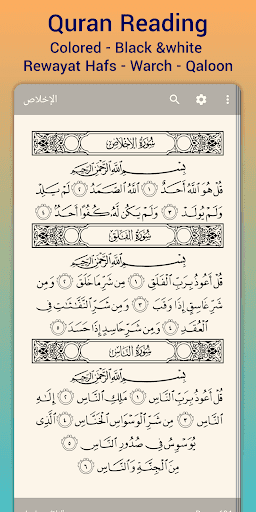 Quran Reading
Colored - Black &white
Rewayat Hafs - Warch - Qaloon
الإخلاص
سُورَةُ الإِخْلَاصِ
بِسْمِ اللَّهِ الرَّحْمَٰنِ الرَّحِيمِ
قُلْ هُوَ اللَّهُ أَحَدٌ ١ اللَّهُ الصَّمَدُ ٢ لَمْ يَلِدْ
وَلَمْ يُولَدْ ٣ وَلَمْ يَكُن لَّهُ كُفُوًا أَحَدٌ ٤
سُورَةُ الفَلَقِ
بِسْمِ اللَّهِ الرَّحْمَٰنِ الرَّحِيمِ
قُلْ أَعُوذُ بِرَبِّ الْفَلَقِ ١ مِن شَرِّ مَا خَلَقَ ٢ وَمِن
شَرِّ غَاسِقٍ إِذَا وَقَبَ ٣ وَمِن شَرِّ النَّفَّٰثَٰتِ فِي
الْعُقَدِ ٤ وَمِن شَرِّ حَاسِدٍ إِذَا حَسَدَ ٥
سُورَةُ النَّاسِ
بِسْمِ اللَّهِ الرَّحْمَٰنِ الرَّحِيمِ
قُلْ أَعُوذُ بِرَبِّ النَّاسِ ١ مَلِكِ النَّاسِ ٢ إِلَٰهِ
النَّاسِ ٣ مِن شَرِّ الْوَسْوَاسِ الْخَنَّاسِ ٤ الَّذِي
يُوَسْوِسُ فِي صُدُورِ النَّاسِ ٥
مِنَ الْجِنَّةِ وَالنَّاسِ ٦